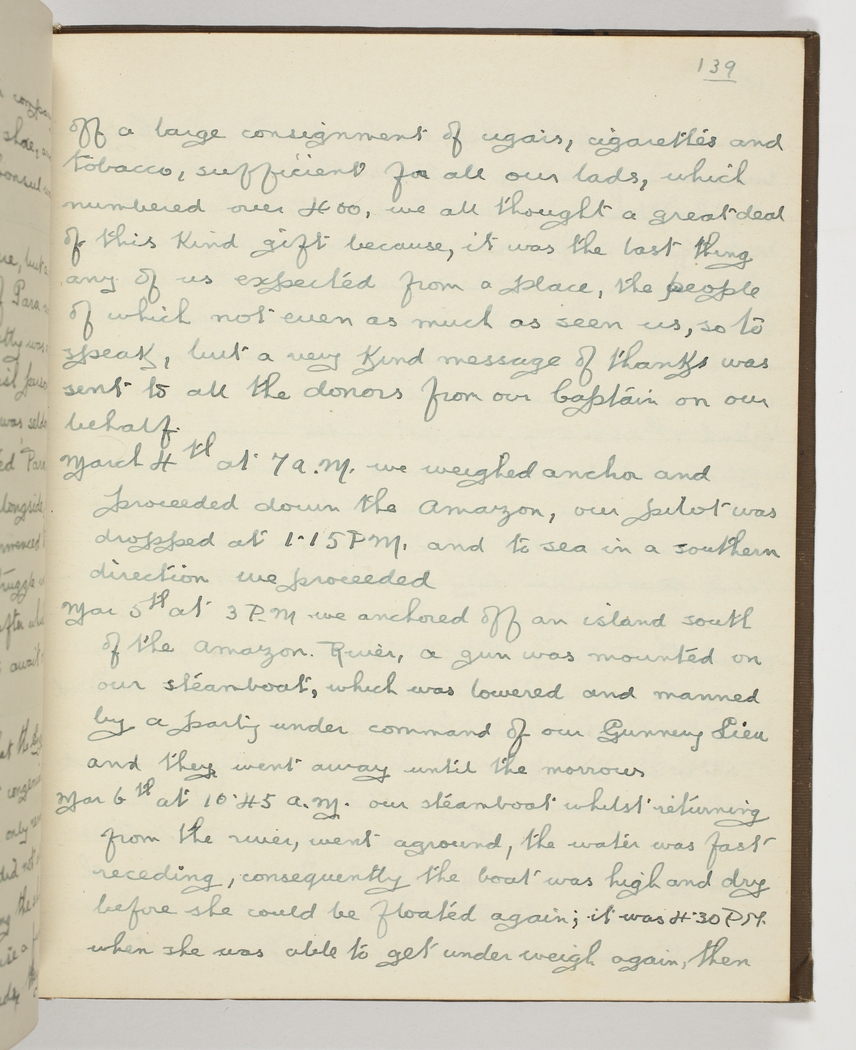 139
off a large consignment of cigars, cigarettes and
tobacco, sufficient for all our lads, which
numbered over 400, we all thought a great deal
of this kind gift because, it was the last thing
any of us expected from a place, the people
of which not even as much as seen us, so to
speak, but a very kind message of thanks was
sent to all the donors from our Captain on our
behalf.
March 4th at 7 a.m. we weighed anchor and
proceeded down the Amazon, our pilot was
dropped at 1.15 P.M. and to sea in a southern
direction we proceeded
Mar 5th at 3 P.M we anchored off an island south
of the Amazon. River, a gun was mounted on
our steamboat, which was lowered and manned
by a party under command of our Gunnery Lieu
and they went away until the morrow
Mar 6th at 10.45 a.m. our steamboat whilst returning
from the river, went aground, the water was fast
receding, consequently the boat was high and dry
before she could be floated again; it was 4.30 P.M.
when she was able to get under weigh again, then